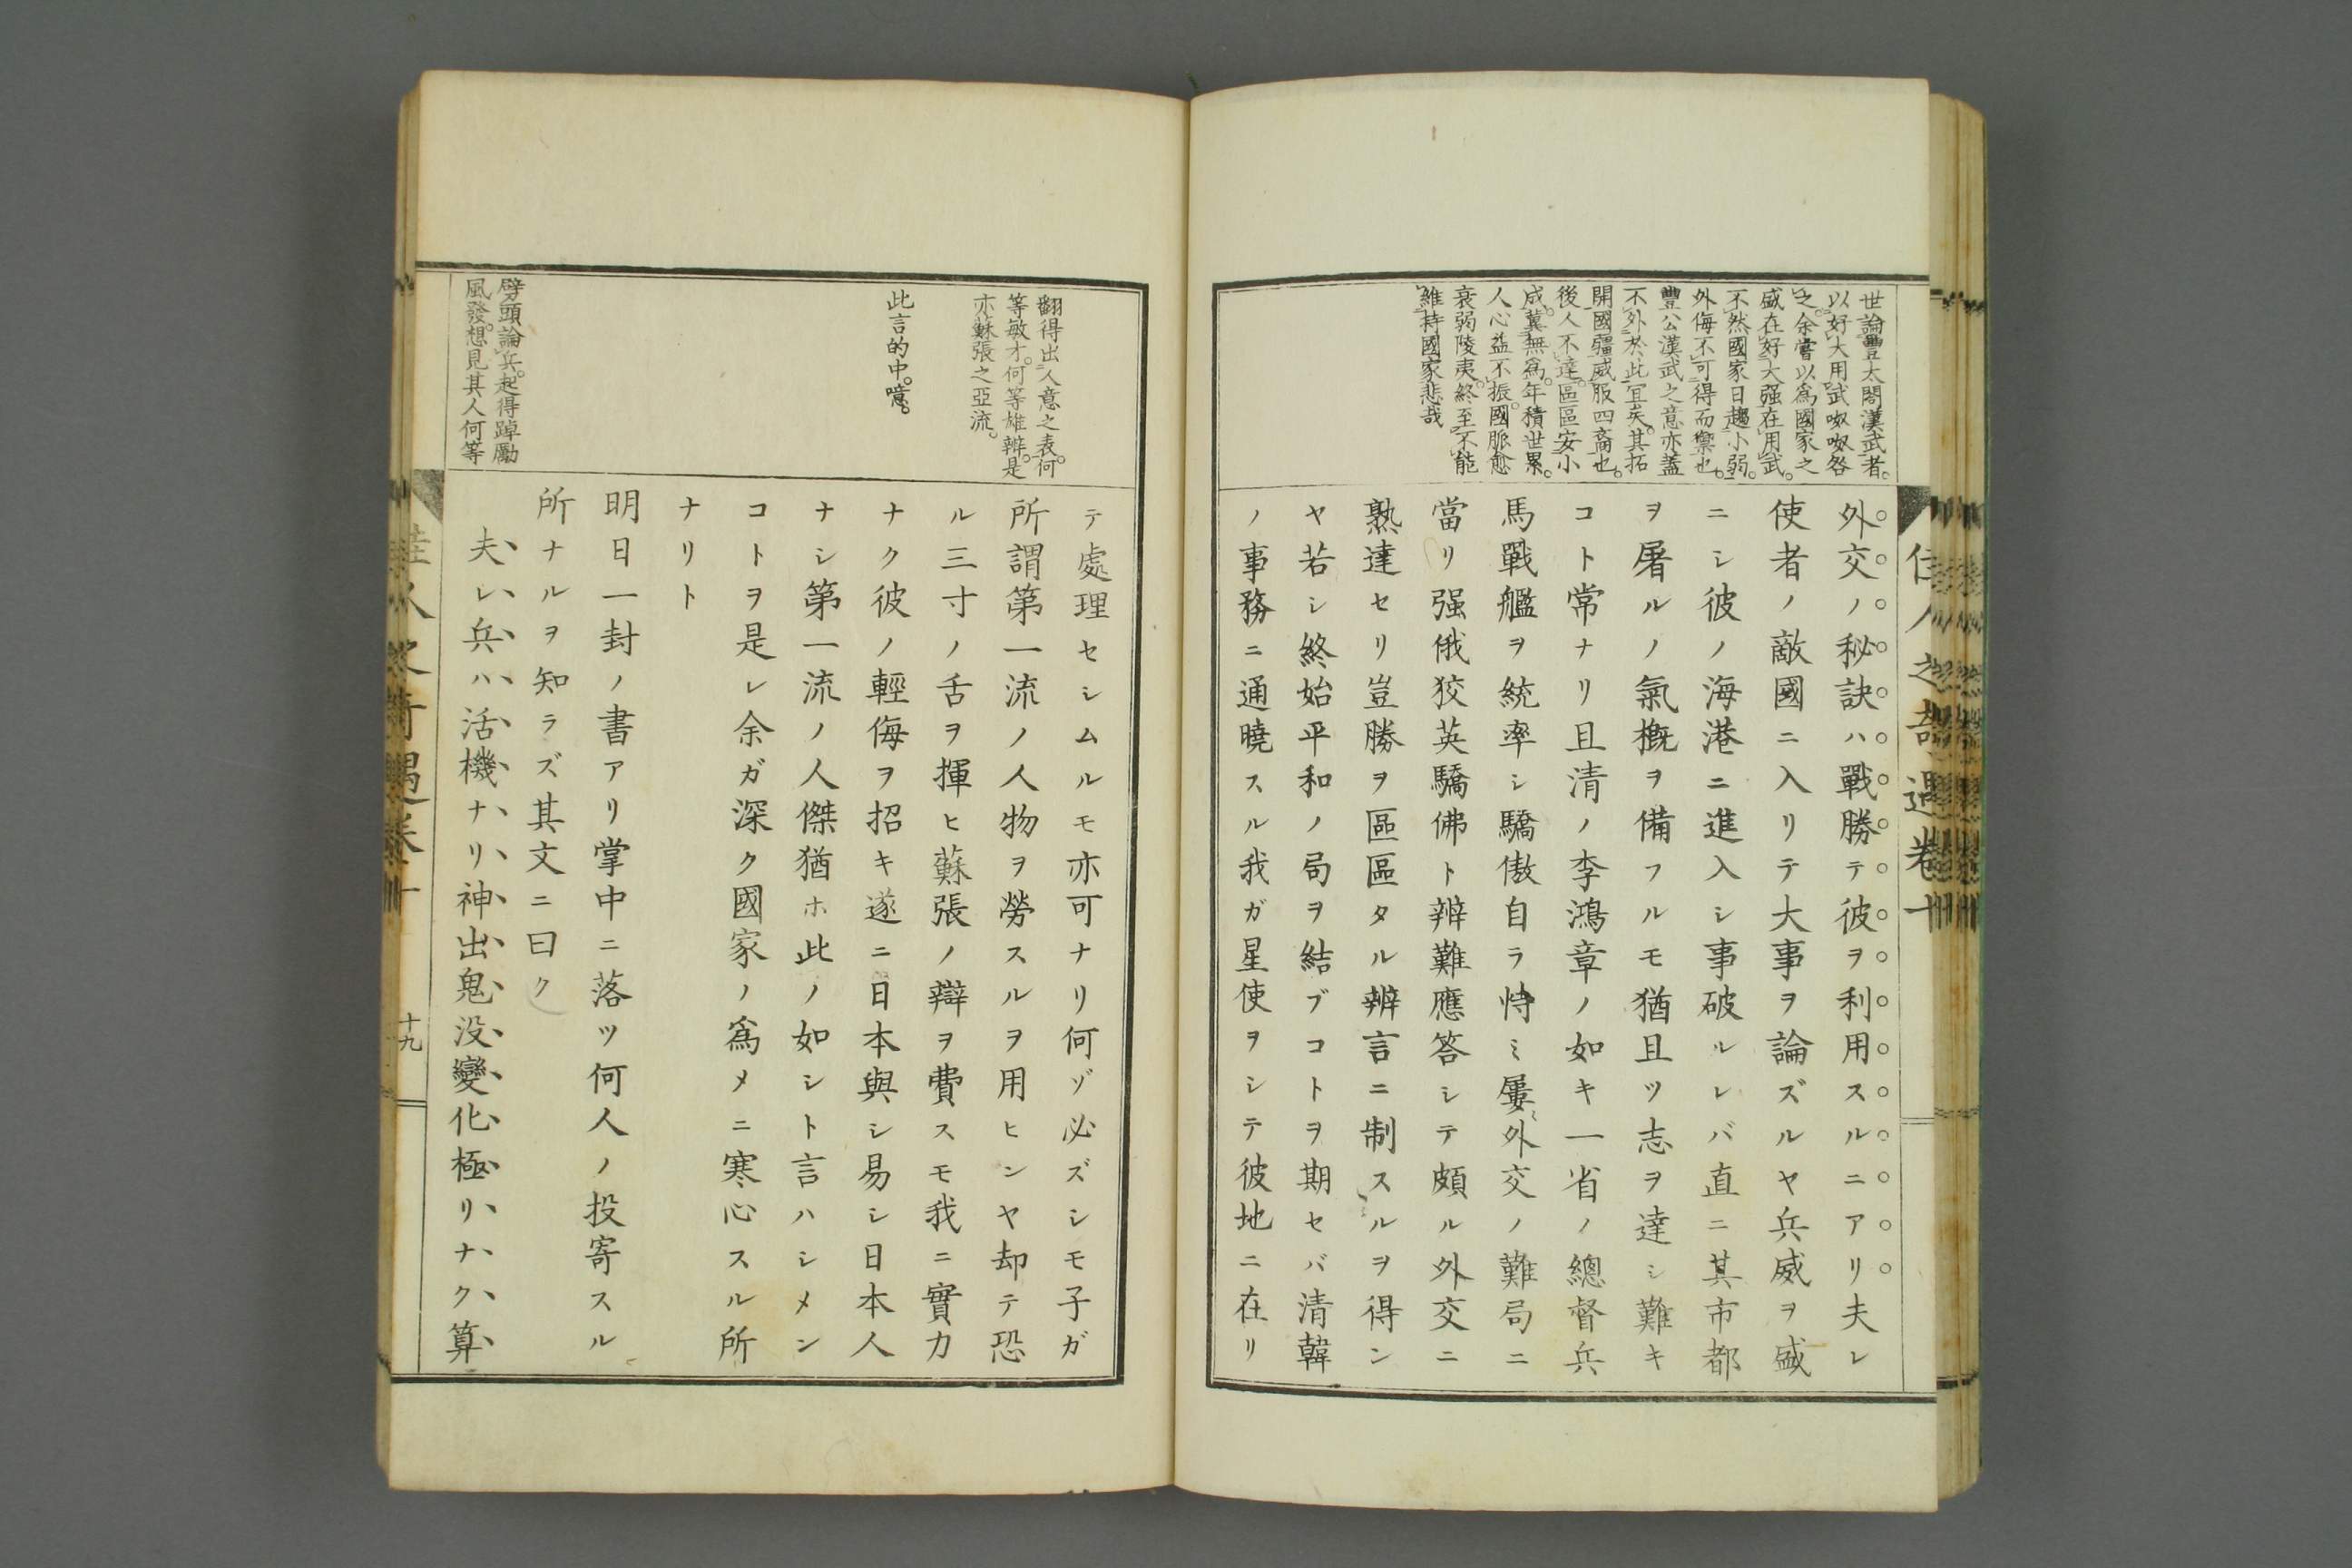 世論豐太閤漢武者。
以好大用武呶呶咎
之。余嘗以爲國家之
盛在好大强在用武。
不然國家日趨小弱。
外侮不可得而禦也。
豐公漢武之意亦蓋
不外於此宜矣。其拓
開國疆威服四裔也。
後人不達。區區安小
成。冀無爲。年積世累。
人心益不振。國脈愈
衰弱陵夷。終至不能
維持國家悲哉
外交ノ秘訣ハ戰勝テ彼ヲ利用スルニアリ夫レ
使者ノ敵國ニ入リテ大事ヲ論ズルヤ兵威ヲ盛
ニシ彼ノ海港ニ進入シ事破ルレバ直ニ其市都
ヲ屠ルノ氣概ヲ備フルモ猶且ツ志ヲ達シ難キ
コト常ナリ且清ノ李鴻章ノ如キ一省ノ總督兵
馬戰艦ヲ統率シ驕傲自ラ恃ミ屢〻外交ノ難局ニ
當リ强俄狡英驕佛ト辨難應答シテ頗ル外交ニ
熟達セリ豈勝ヲ區區タル辨言ニ制スルヲ得ン
ヤ若シ終始平和ノ局ヲ結ブコトヲ期セバ清韓
ノ事務ニ通曉スル我ガ星使ヲシテ彼地ニ在リ
佳人之奇遇卷十
翻得出人意之表。何
等敏才。何等雄辨。是
亦蘇張之亞流。
此言的中。噫。
劈頭論兵。起得踔厲
風發。想見其人何等
テ處理セシムルモ亦可ナリ何ゾ必ズシモ子ガ
所謂第一流ノ人物ヲ勞スルヲ用ヒンヤ却テ恐
ル三寸ノ舌ヲ揮ヒ蘇張ノ辯ヲ費スモ我ニ實力
ナク彼ノ輕侮ヲ招キ遂ニ日本與シ易シ日本人
ナシ第一流ノ人傑猶ホ此ノ如シト言ハシメン
コトヲ是レ余ガ深ク國家ノ爲メニ寒心スル所
ナリト
明日一封ノ書アリ掌中ニ落ツ何人ノ投寄スル
所ナルヲ知ラズ其文ニ曰ク
夫レ兵ハ活機ナリ神出鬼没變化極リナク算
佳人之奇遇卷十
十九